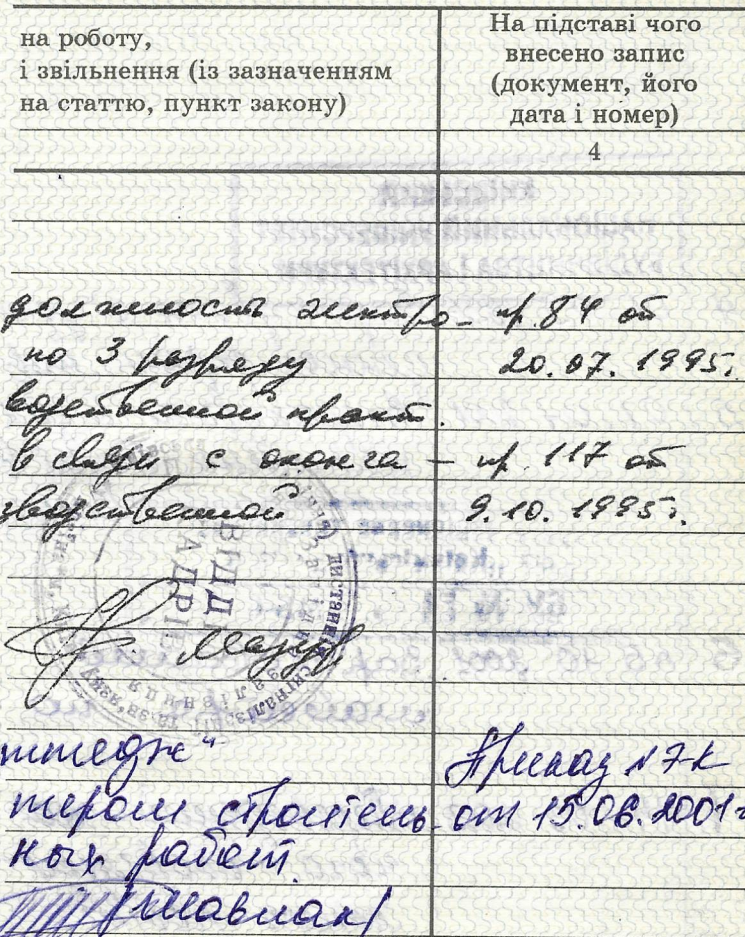 на роботу,
і звільнення (із зазначенням
на статтю, пункт закону)
На підставі чого
внесено запис
(документ, його
дата і номер)
4
должность электро-
по 3 разряду
водственной практ.
в связи с оконча-
зводственной
пр. 84 от
20.07.1995г.
пр. 117 от
9.10.1995г.
ВІДДІ
КАДРІВ
дистанція
сигналізації та зв'язку
Мазур
ттедж"
тером строитель-
ных работ.
Приказ №7-к
от 15.06.2001г